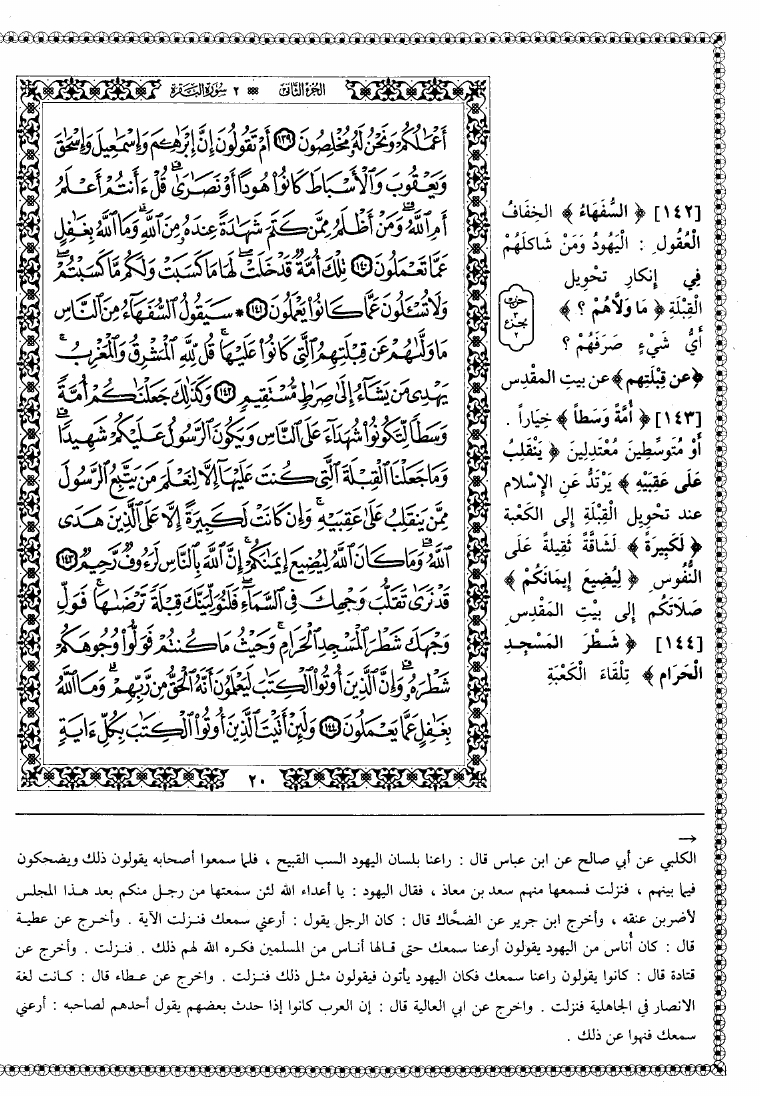 الجزء الثاني ٢ سورة البقرة
أَعْمَٰلُكُمْ وَنَحْنُ لَهُۥ مُخْلِصُونَ ١٣٩ أَمْ تَقُولُونَ إِنَّ إِبْرَٰهِـۧمَ وَإِسْمَٰعِيلَ وَإِسْحَٰقَ
وَيَعْقُوبَ وَٱلْأَسْبَاطَ كَانُوا۟ هُودًا أَوْ نَصَٰرَىٰ ۗ قُلْ ءَأَنتُمْ أَعْلَمُ
أَمِ ٱللَّهُ ۗ وَمَنْ أَظْلَمُ مِمَّن كَتَمَ شَهَٰدَةً عِندَهُۥ مِنَ ٱللَّهِ ۗ وَمَا ٱللَّهُ بِغَٰفِلٍ
عَمَّا تَعْمَلُونَ ١٤٠ تِلْكَ أُمَّةٌ قَدْ خَلَتْ ۖ لَهَا مَا كَسَبَتْ وَلَكُم مَّا كَسَبْتُمْ ۖ
وَلَا تُسْـَٔلُونَ عَمَّا كَانُوا۟ يَعْمَلُونَ ١٤١ * سَيَقُولُ ٱلسُّفَهَآءُ مِنَ ٱلنَّاسِ
مَا وَلَّىٰهُمْ عَن قِبْلَتِهِمُ ٱلَّتِى كَانُوا۟ عَلَيْهَا ۚ قُل لِّلَّهِ ٱلْمَشْرِقُ وَٱلْمَغْرِبُ ۚ
يَهْدِى مَن يَشَآءُ إِلَىٰ صِرَٰطٍ مُّسْتَقِيمٍ ١٤٢ وَكَذَٰلِكَ جَعَلْنَٰكُمْ أُمَّةً
وَسَطًا لِّتَكُونُوا۟ شُهَدَآءَ عَلَى ٱلنَّاسِ وَيَكُونَ ٱلرَّسُولُ عَلَيْكُمْ شَهِيدًا ۗ
وَمَا جَعَلْنَا ٱلْقِبْلَةَ ٱلَّتِى كُنتَ عَلَيْهَآ إِلَّا لِنَعْلَمَ مَن يَتَّبِعُ ٱلرَّسُولَ
مِمَّن يَنقَلِبُ عَلَىٰ عَقِبَيْهِ ۚ وَإِن كَانَتْ لَكَبِيرَةً إِلَّا عَلَى ٱلَّذِينَ هَدَى
ٱللَّهُ ۗ وَمَا كَانَ ٱللَّهُ لِيُضِيعَ إِيمَٰنَكُمْ ۚ إِنَّ ٱللَّهَ بِٱلنَّاسِ لَرَءُوفٌ رَّحِيمٌ ١٤٣
قَدْ نَرَىٰ تَقَلُّبَ وَجْهِكَ فِى ٱلسَّمَآءِ ۖ فَلَنُوَلِّيَنَّكَ قِبْلَةً تَرْضَىٰهَا ۚ فَوَلِّ
وَجْهَكَ شَطْرَ ٱلْمَسْجِدِ ٱلْحَرَامِ ۚ وَحَيْثُ مَا كُنتُمْ فَوَلُّوا۟ وُجُوهَكُمْ
شَطْرَهُۥ ۗ وَإِنَّ ٱلَّذِينَ أُوتُوا۟ ٱلْكِتَٰبَ لَيَعْلَمُونَ أَنَّهُ ٱلْحَقُّ مِن رَّبِّهِمْ ۗ وَمَا ٱللَّهُ
بِغَٰفِلٍ عَمَّا يَعْمَلُونَ ١٤٤ وَلَئِنْ أَتَيْتَ ٱلَّذِينَ أُوتُوا۟ ٱلْكِتَٰبَ بِكُلِّ ءَايَةٍ
٢٠
[١٤٢] ﴿ السُّفَهَاءُ ﴾ الخِفَافُ
الْعُقُولِ : الْيَهُودُ وَمَنْ شَاكَلَهُمْ
فِي إِنكارِ تحْوِيلِ
القِبْلَةِ ﴿ مَا وَلاَّهُمْ ؟ ﴾
أَيُّ شَيْءٍ صَرَفَهُمْ ؟
﴿عن قِبْلَتِهم﴾ عن بيتِ المقْدِس
[١٤٣] ﴿ أُمَّةً وَسَطاً ﴾ خِيَاراً .
أَوْ مُتَوسِّطِينَ مُعْتَدِلِينَ ﴿ يَنْقَلِبُ
عَلَى عَقِبَيْهِ ﴾ يَرْتَدُّ عَنِ الإِسْلام
عند تحْوِيلِ القِبْلَةِ إلى الكَعْبَة
﴿ لَكَبِيرَةً ﴾ لَشَاقَّةً ثَقِيلةً عَلَى
النُّفُوسِ ﴿ لِيُضيعَ إيمَانَكُمْ ﴾
صَلَاتَكُم إلى بيْتِ المَقْدِسِ
[١٤٤] ﴿ شَطْرَ المَسْجِدِ
الْحَرَام ﴾ تِلْقَاءَ الكَعْبَةِ
حزب
٣
جزء
٢
→
الكلبي عن أبي صالح عن ابن عباس قال : راعنا بلسان اليهود السب القبيح ، فلما سمعوا أصحابه يقولون ذلك ويضحكون
فيما بينهم ، فنزلت فسمعها منهم سعد بن معاذ ، فقال اليهود : يا أعداء الله لئن سمعتها من رجل منكم بعد هذا المجلس
لأضربن عنقه ، وأخرج ابن جرير عن الضحّاك قال : كان الرجل يقول : أرعني سمعك فنزلت الآية . وأخرج عن عطية
قال : كان أُناس من اليهود يقولون أرعنا سمعك حتى قالها أناس من المسلمين فكره الله لهم ذلك . فنزلت . وأخرج عن
قتادة قال : كانوا يقولون راعنا سمعك فكان اليهود يأتون فيقولون مثل ذلك فنزلت . واخرج عن عطاء قال : كانت لغة
الانصار في الجاهلية فنزلت . واخرج عن ابي العالية قال : إن العرب كانوا إذا حدث بعضهم يقول أحدهم لصاحبه : أرعني
سمعك فنهوا عن ذلك .